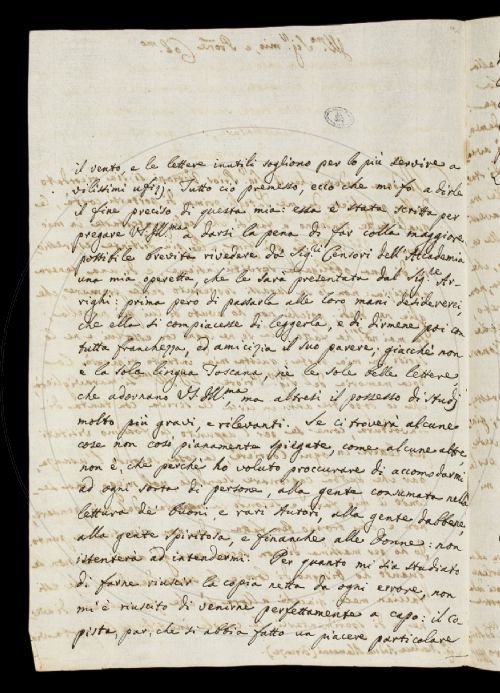 il vento, e le lettere inutili sogliono per lo più servire a
vilissimi ufizj. Tutto ciò premesso, ecco che mi fo a dirle
il fine preciso di questa mia: essa è stata scritta per
pregare VS. Ill.ma a darsi la pena di far colla maggiore
possibile brevità rivedere da' Sig.ri Censori dell'Accademia
una mia operetta, che le sarà presentata dal Sig.re Ar-
righi: prima però di passarla alle loro mani desidererei,
che ella si compiacesse di leggerla, e di dirmene poi con
tutta franchezza, ed amicizia il suo parere, giacchè non
è la sola lingua Toscana, nè le sole belle lettere,
che adornano VS. Ill.ma ma altresì il possesso di Studj
molto più gravi, e rilevanti. Se ci troverà alcune
cose non così pianamente spiegate, come alcune altre,
non è, che perchè ho voluto proccurare di accomodarmi
ad ogni sorta di persone, alla gente consumata nella
lettura de' buoni, e rari Autori, alla gente dabbene,
alla gente spiritosa, e finanche alle Donne: non
istenterà ad intendermi. Per quanto mi sia studiato
di farne riuscir la copia netta da ogni errore, non
mi è riuscito di venirne perfettamente a capo: il co-
pista par, che si abbia fatto un piacere particolare